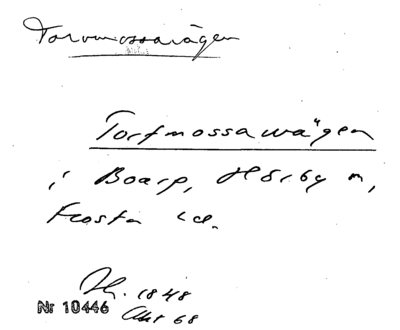 Torvmossavägen
Torfmossawägen
i Boarp, Hörby n,
Frosta hd.
Th. 1848
Nr 10446
Akt 68